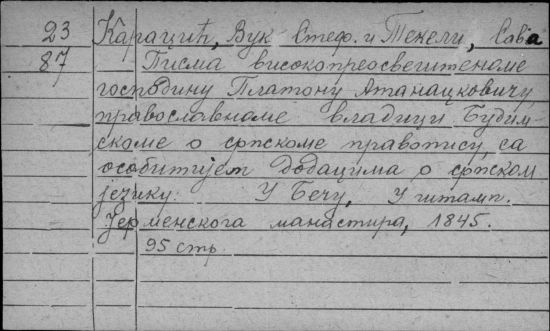 23 Караџић, Вук Стеф. и Текели, Сава
87 Писма високопреосвештеноме
господину Платону Атанацковичу,
православноме владици Будим-
скоме о српскоме правопису, са
особитијем додацима о српском
језику. У Бечу, У штамп.
Јерменскога манастира, 1845.
95 стр.